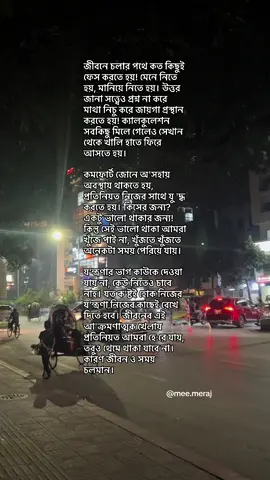 জীবনে চলার পথে কত কিছুই
ফেস করতে হয়! মেনে নিতে
হয়, মানিয়ে নিতে হয়। উত্তর
জানা সত্ত্বেও প্রশ্ন না করে
মাথা নিচু করে জায়গা প্রস্থান
করতে হয়! ক্যালকুলেশন
সবকিছু মিলে গেলেও সেখান
থেকে খালি হাতে ফিরে
আসতে হয়।
কমফোর্ট জোনে অ'সহায়
অবস্থায় থাকতে হয়,
প্রতিনিয়ত নিজের সাথে যু 'দ্ধ
করতে হয়। কিসের জন্য?
একটু ভালো থাকার জন্য!
কিন্তু সেই ভালো থাকা আমরা
খুঁজে পাই না, খুঁজতে খুঁজতে
অনেকটা সময় পেরিয়ে যায়।
য'ন্ত্রণার ভাগ কাউকে দেওয়া
যায় না, কেউ নিতেও চাবে
নাহ। যতক'ষ্টই হোক নিজের
য'ন্ত্রণা নিজের কাছেই রেখে
দিতে হবে। জীবনের এই
আ'ক্রমণাত্মক খেলায়
প্রতিনিয়ত আমরা হে'রে যায়,
তবুও থেমে থাকা যাবে না।
কারণ জীবন ও সময়
চলমান।
@mee.meraj